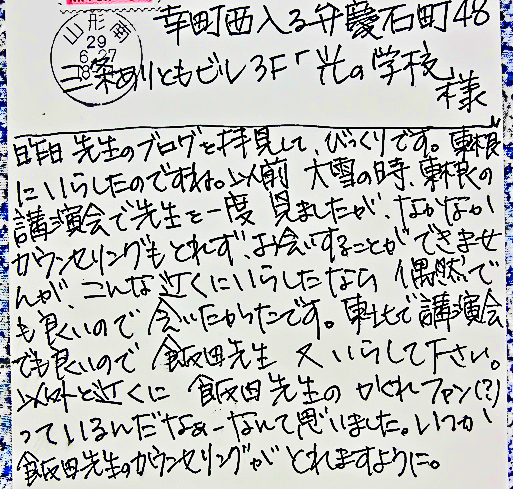 山形西
29
6.27
幸町西入る弁慶石町48
三条ありもとビル3F「光の学校」
様
昨日 先生のブログを拝見して、びっくりです。東根
にいらしたのですね。以前 大雪の時、東根の
講演会で先生を一度 見ましたが、なかなか
カウンセリングもとれず、お会いすることができませ
んが、こんな近くにいらしたなら 偶然で
も良いので 会いたかったです。東北で講演会
でも良いので 飯田先生 又いらして下さい。
以外と近くに 飯田先生の かくれファン(?)
っているんだなぁーなんて思いました。いつか
飯田先生のカウンセリングが とれますように。